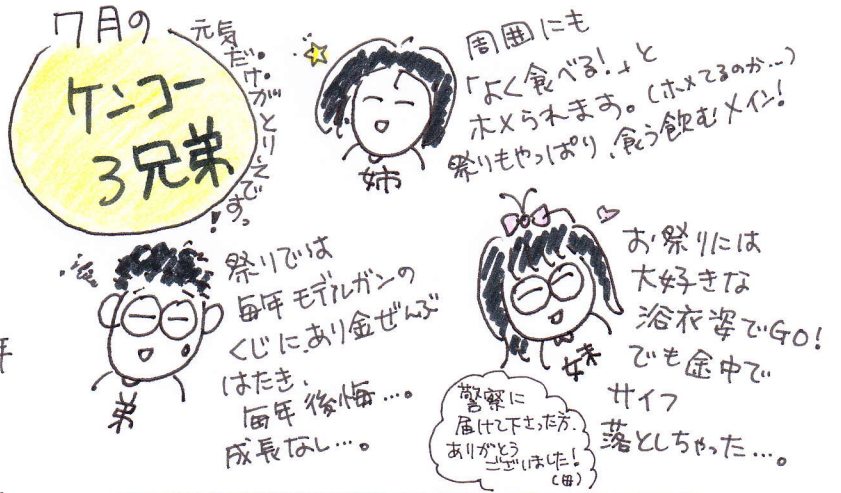 7月の
ケンコー
3兄弟
元気だけがとりえですっ!
姉
周囲にも
「よく食べる!」と
ホメられます。(ホメてるのか…)
祭りもやっぱり、食う飲むメイン!
弟
祭りでは
毎年モデルガンの
くじに、あり金ぜんぶ
はたき、
毎年後悔…。
成長なし…。
妹
お祭りには
大好きな
浴衣姿でGO!
でも途中で
サイフ
落としちゃった…。
警察に
届けて下さった方、
ありがとう
ございました!
(母)
年